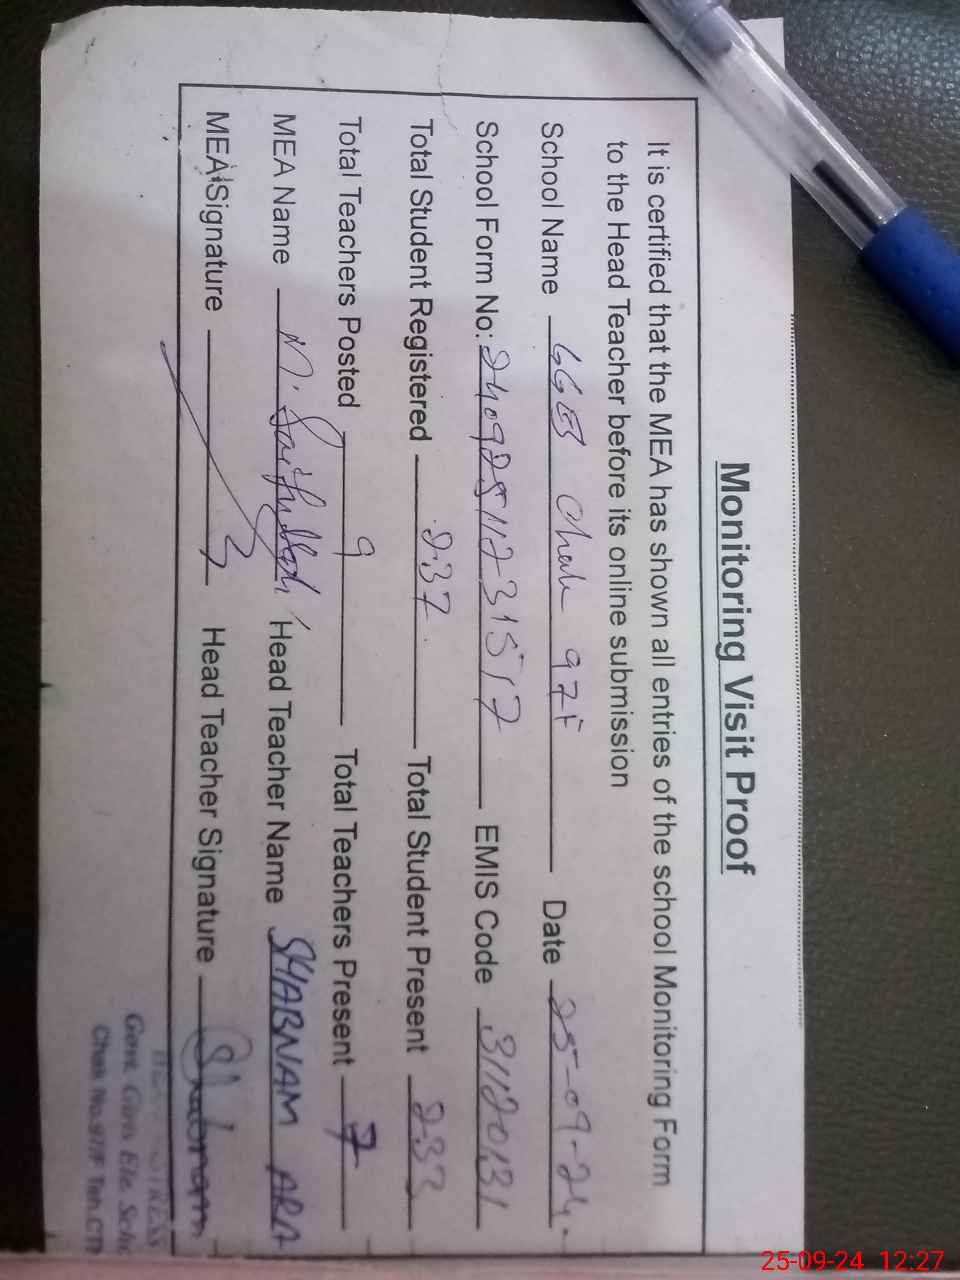 Monitoring Visit Proof
It is certified that the MEA has shown all entries of the school Monitoring Form
to the Head Teacher before its online submission
School Name GGES Chak 97F Date 25-09-24.
School Form No: 24092511231517 EMIS Code 31120131
Total Student Registered 237 Total Student Present 233
Total Teachers Posted 9 Total Teachers Present 7
MEA Name M. Saifullah Head Teacher Name SHABNAM ARA
MEA Signature Head Teacher Signature Shabnam
Govt. Girls Ele. Scho
Chak No.97/F Teh.CTN
25-09-24 12:27